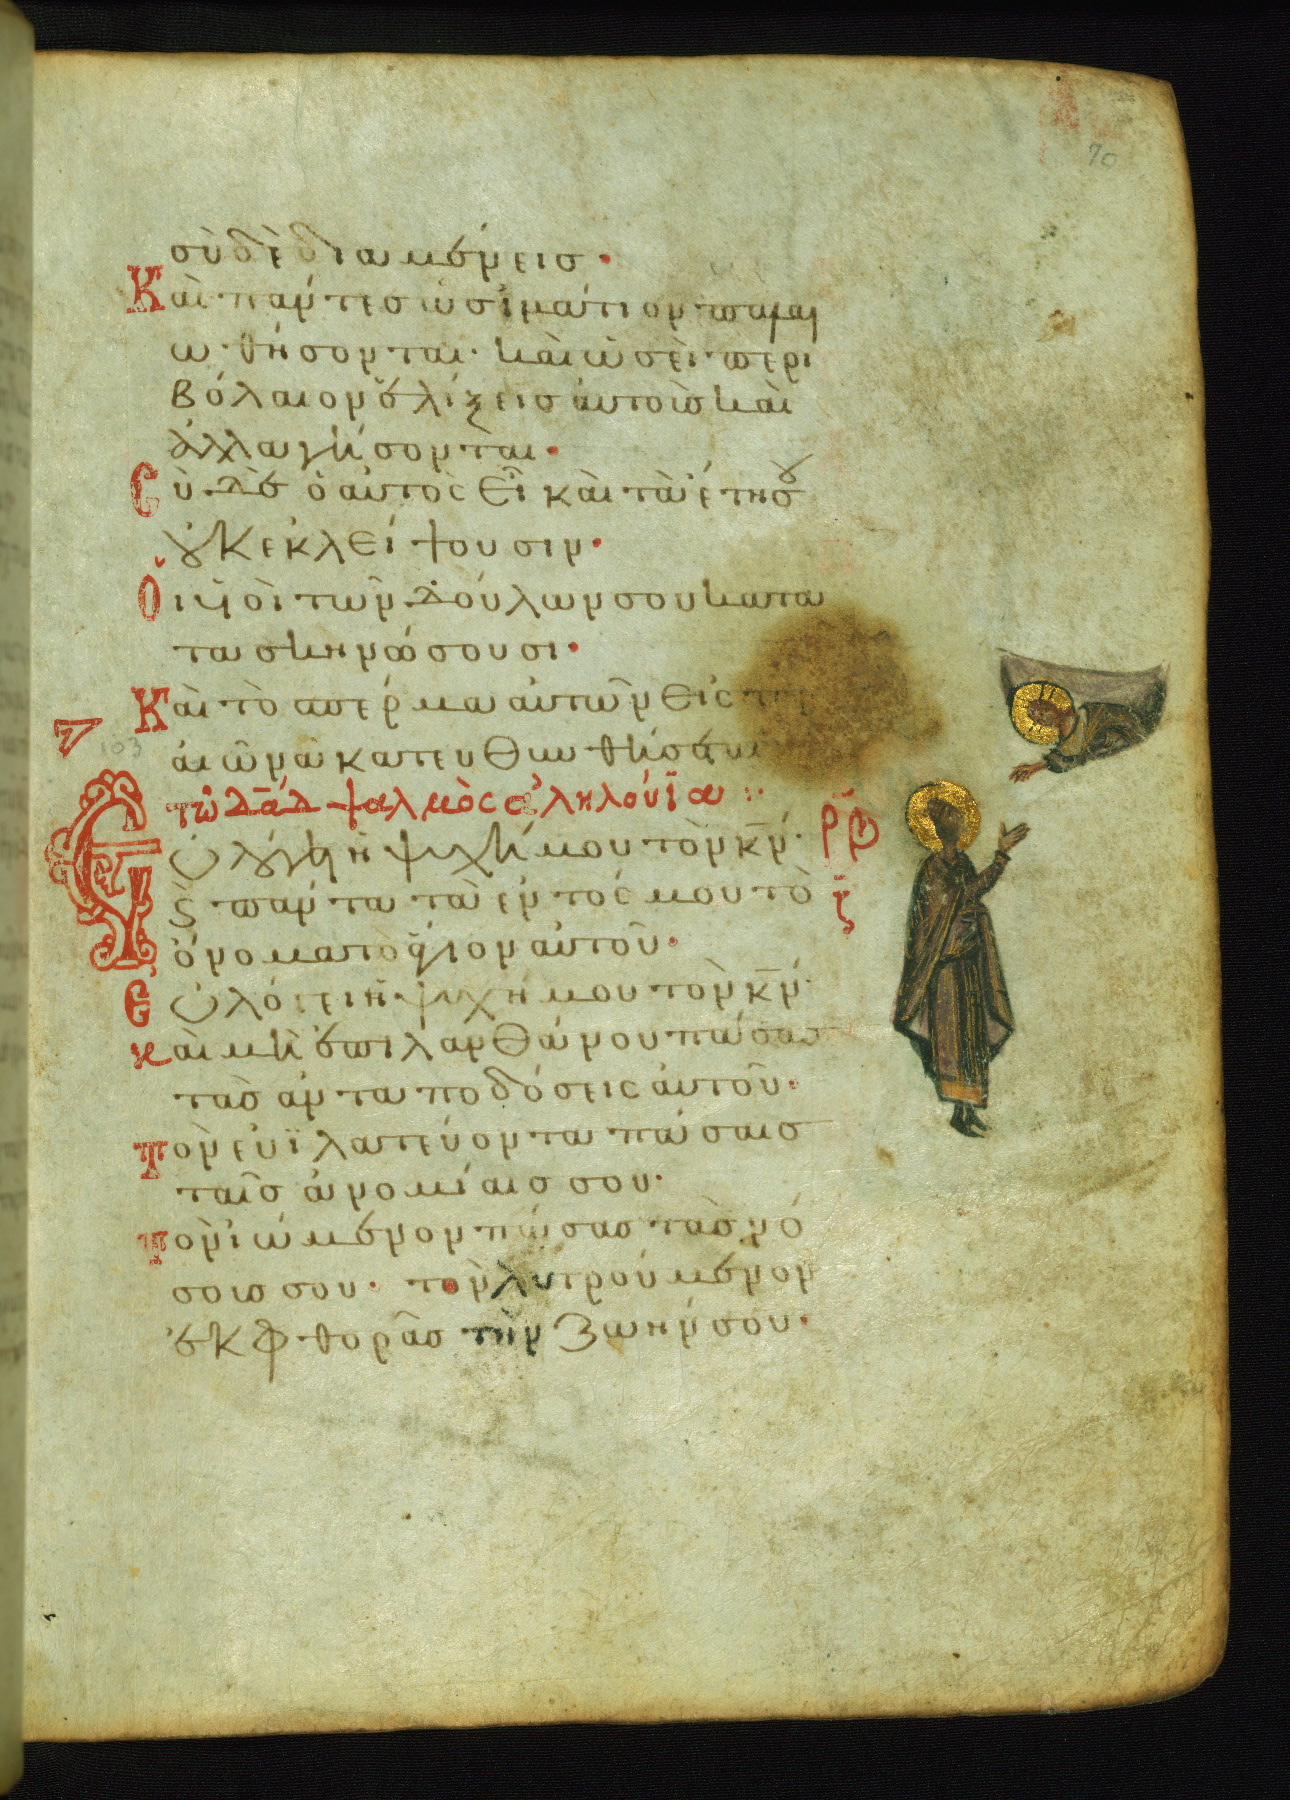 70
σὺ δὲ διαμένεις·
Καὶ πάντες ὡς ἱμάτιον παλαι
ωθήσονται· καὶ ὡσεὶ περι
βόλαιον ἑλίξεις αὐτοὺς καὶ
ἀλλαγήσονται·
Σὺ δὲ ὁ αὐτὸς εἶ καὶ τὰ ἔτη σου
οὐκ ἐκλείψουσιν·
Οἱ υἱοὶ τῶν δούλων σου κατα
τασκηνώσουσι·
Καὶ τὸ σπέρμα αὐτῶν εἰς τὸν
αἰῶνα κατευθυνθήσεται
103
τῶ δαδ ψαλμὸς ἀλληλούϊα
Εὐλόγει ἡ ψυχή μου τὸν κν· ργ
ς πάντα τὰ ἐντός μου τὸ
ὄνομα τὸ ἅγιον αὐτοῦ·
Εὐλόγει ἡ ψυχή μου τὸν κν·
καὶ μὴ ἐπιλανθάνου πάσας
τὰς ἀνταποδόσεις αὐτοῦ·
τὸν εὐϊλατεύοντα πάσαις
ταῖς ἀνομίαις σου·
τὸν ἰώμενον πάσας τὰς νό
σους σου· τὸν λυτρούμενον
ἐκ φθορᾶς τὴν ζωήν σου·